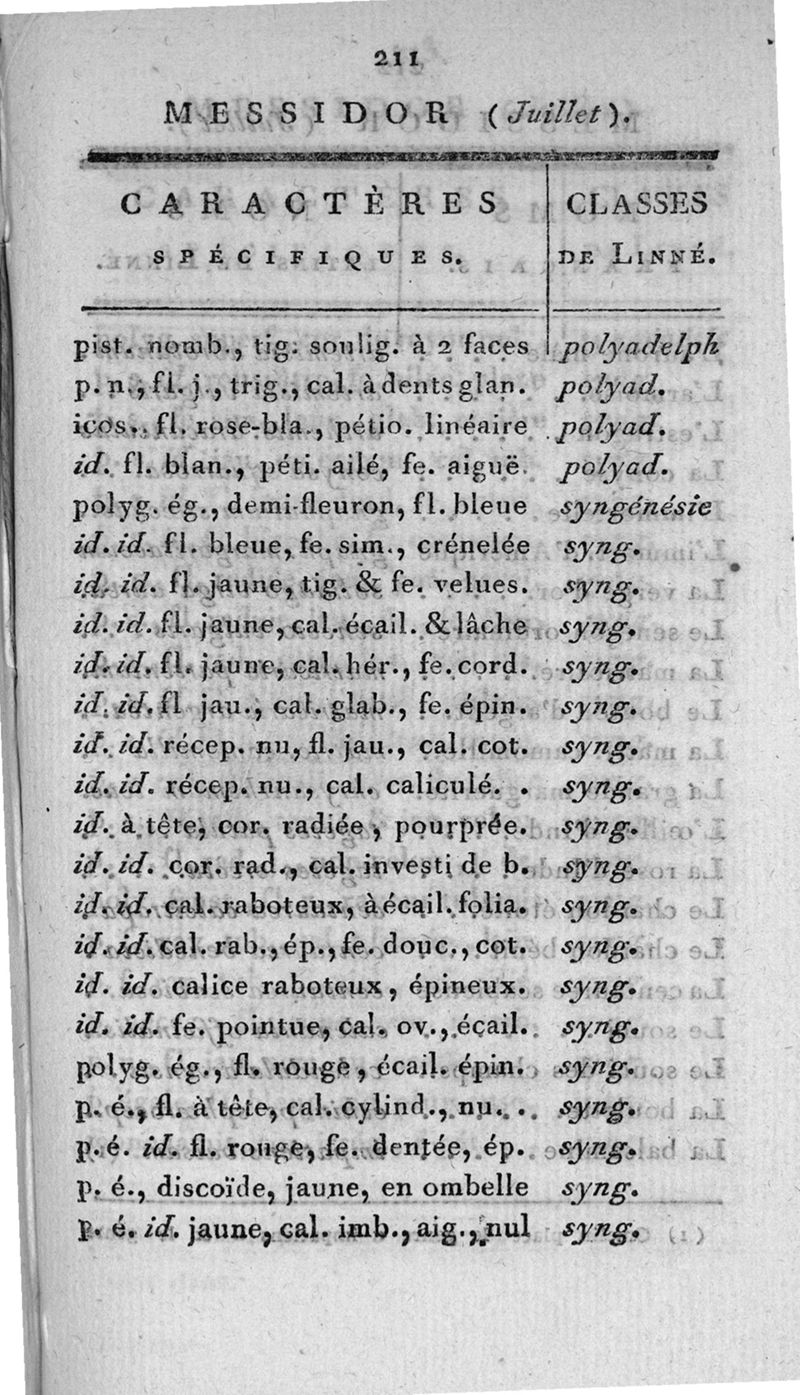 211
MESSIDOR (Juillet).
CARACTÈRES CLASSES
SPÉCIFIQUES. DE LINNÉ.
pist. nomb., tig. soulig. à 2 faces polyadelph
p. n., fl. j., trig., cal. à dents glan. polyad.
icos., fl. rose-bla., pétio. linéaire polyad.
id. fl. blan., péti. ailé, fe. aiguë. polyad.
polyg. ég., demi-fleuron, fl. bleue syngénésie
id. id. fl. bleue, fe. sim., crénelée syng.
id. id. fl. jaune, tig. & fe. velues. syng.
id. id. fl. jaune, cal. écail. & lâche syng.
id. id. fl. jaune, cal. hér., fe. cord. syng.
id. id. fl jau., cal. glab., fe. épin. syng.
id. id. récep. nu, fl. jau., cal. cot. syng.
id. id. récep. nu., cal. caliculé. . syng.
id. à tête, cor. radiée, pourprée. syng.
id. id. cor. rad., cal. investi de b. syng.
id. id. cal. raboteux, à écail. folia. syng.
id. id. cal. rab., ép., fe. douc., cot. syng.
id. id. calice raboteux, épineux. syng.
id. id. fe. pointue, cal. ov., écail. syng.
polyg. ég., fl. rouge, écail. épin. syng.
p. é., fl. à tête, cal. cylind., nu. . . syng.
p. é. id. fl. rouge, fe. dentée, ép. syng.
p. é., discoïde, jaune, en ombelle syng.
p. é. id. jaune, cal. imb., aig., nul syng.